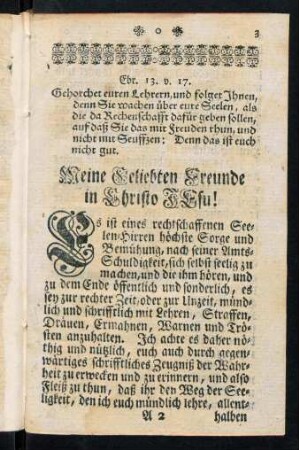 0 3
Ebr. 13. v. 17.
Gehorchet euren Lehrern, und folget Ihnen,
denn Sie wachen über eure Seelen, als
die da Rechenschafft dafür geben sollen,
auf daß Sie das mit Freuden thun, und
nicht mit Seuffzen: Denn das ist euch
nicht gut.
Meine Geliebten Freunde
in Christo JEsu!
Es ist eines rechtschaffenen See-
len-Hirten höchste Sorge und
Bemühung, nach seiner Amts-
Schuldigkeit, sich selbst seelig zu
machen, und die ihm hören, und
zu dem Ende öffentlich und sonderlich, es
sey zur rechter Zeit, oder zur Unzeit, münd-
lich und schrifftlich mit Lehren, Straffen,
Dräuen, Ermahnen, Warnen und Trö-
sten anzuhalten. Ich achte es daher nö-
thig und nützlich, euch auch durch gegen-
wärtiges schrifftliches Zeugniß der Wahr-
heit zu erwecken und zu erinnern, und also
Fleiß zu thun, daß ihr den Weg der See-
ligkeit, den ich euch mündlich lehre, allent-
A 2 halben